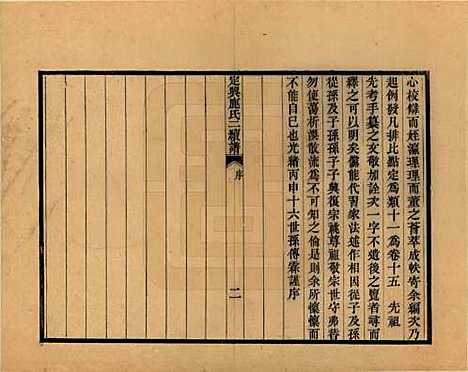 心校辯而姪瀛理理而董之薈萃成帙寄余編次乃
起例發凡排比點定爲類十一爲卷十五　先祖
先考手纂之文敬加詮次一字不遺後之覽者尋而
釋之可以明矣儻能代習家法述作相因從子及子
從孫及子孫孫子子興復宗祧尊祖敬宗世守弗替
勿使蕩析渙散流爲不可知之倫是則余所懷懷而
不能自已也光緒丙申十六世孫傳霖謹序
定興鹿氏二續譜
序
二